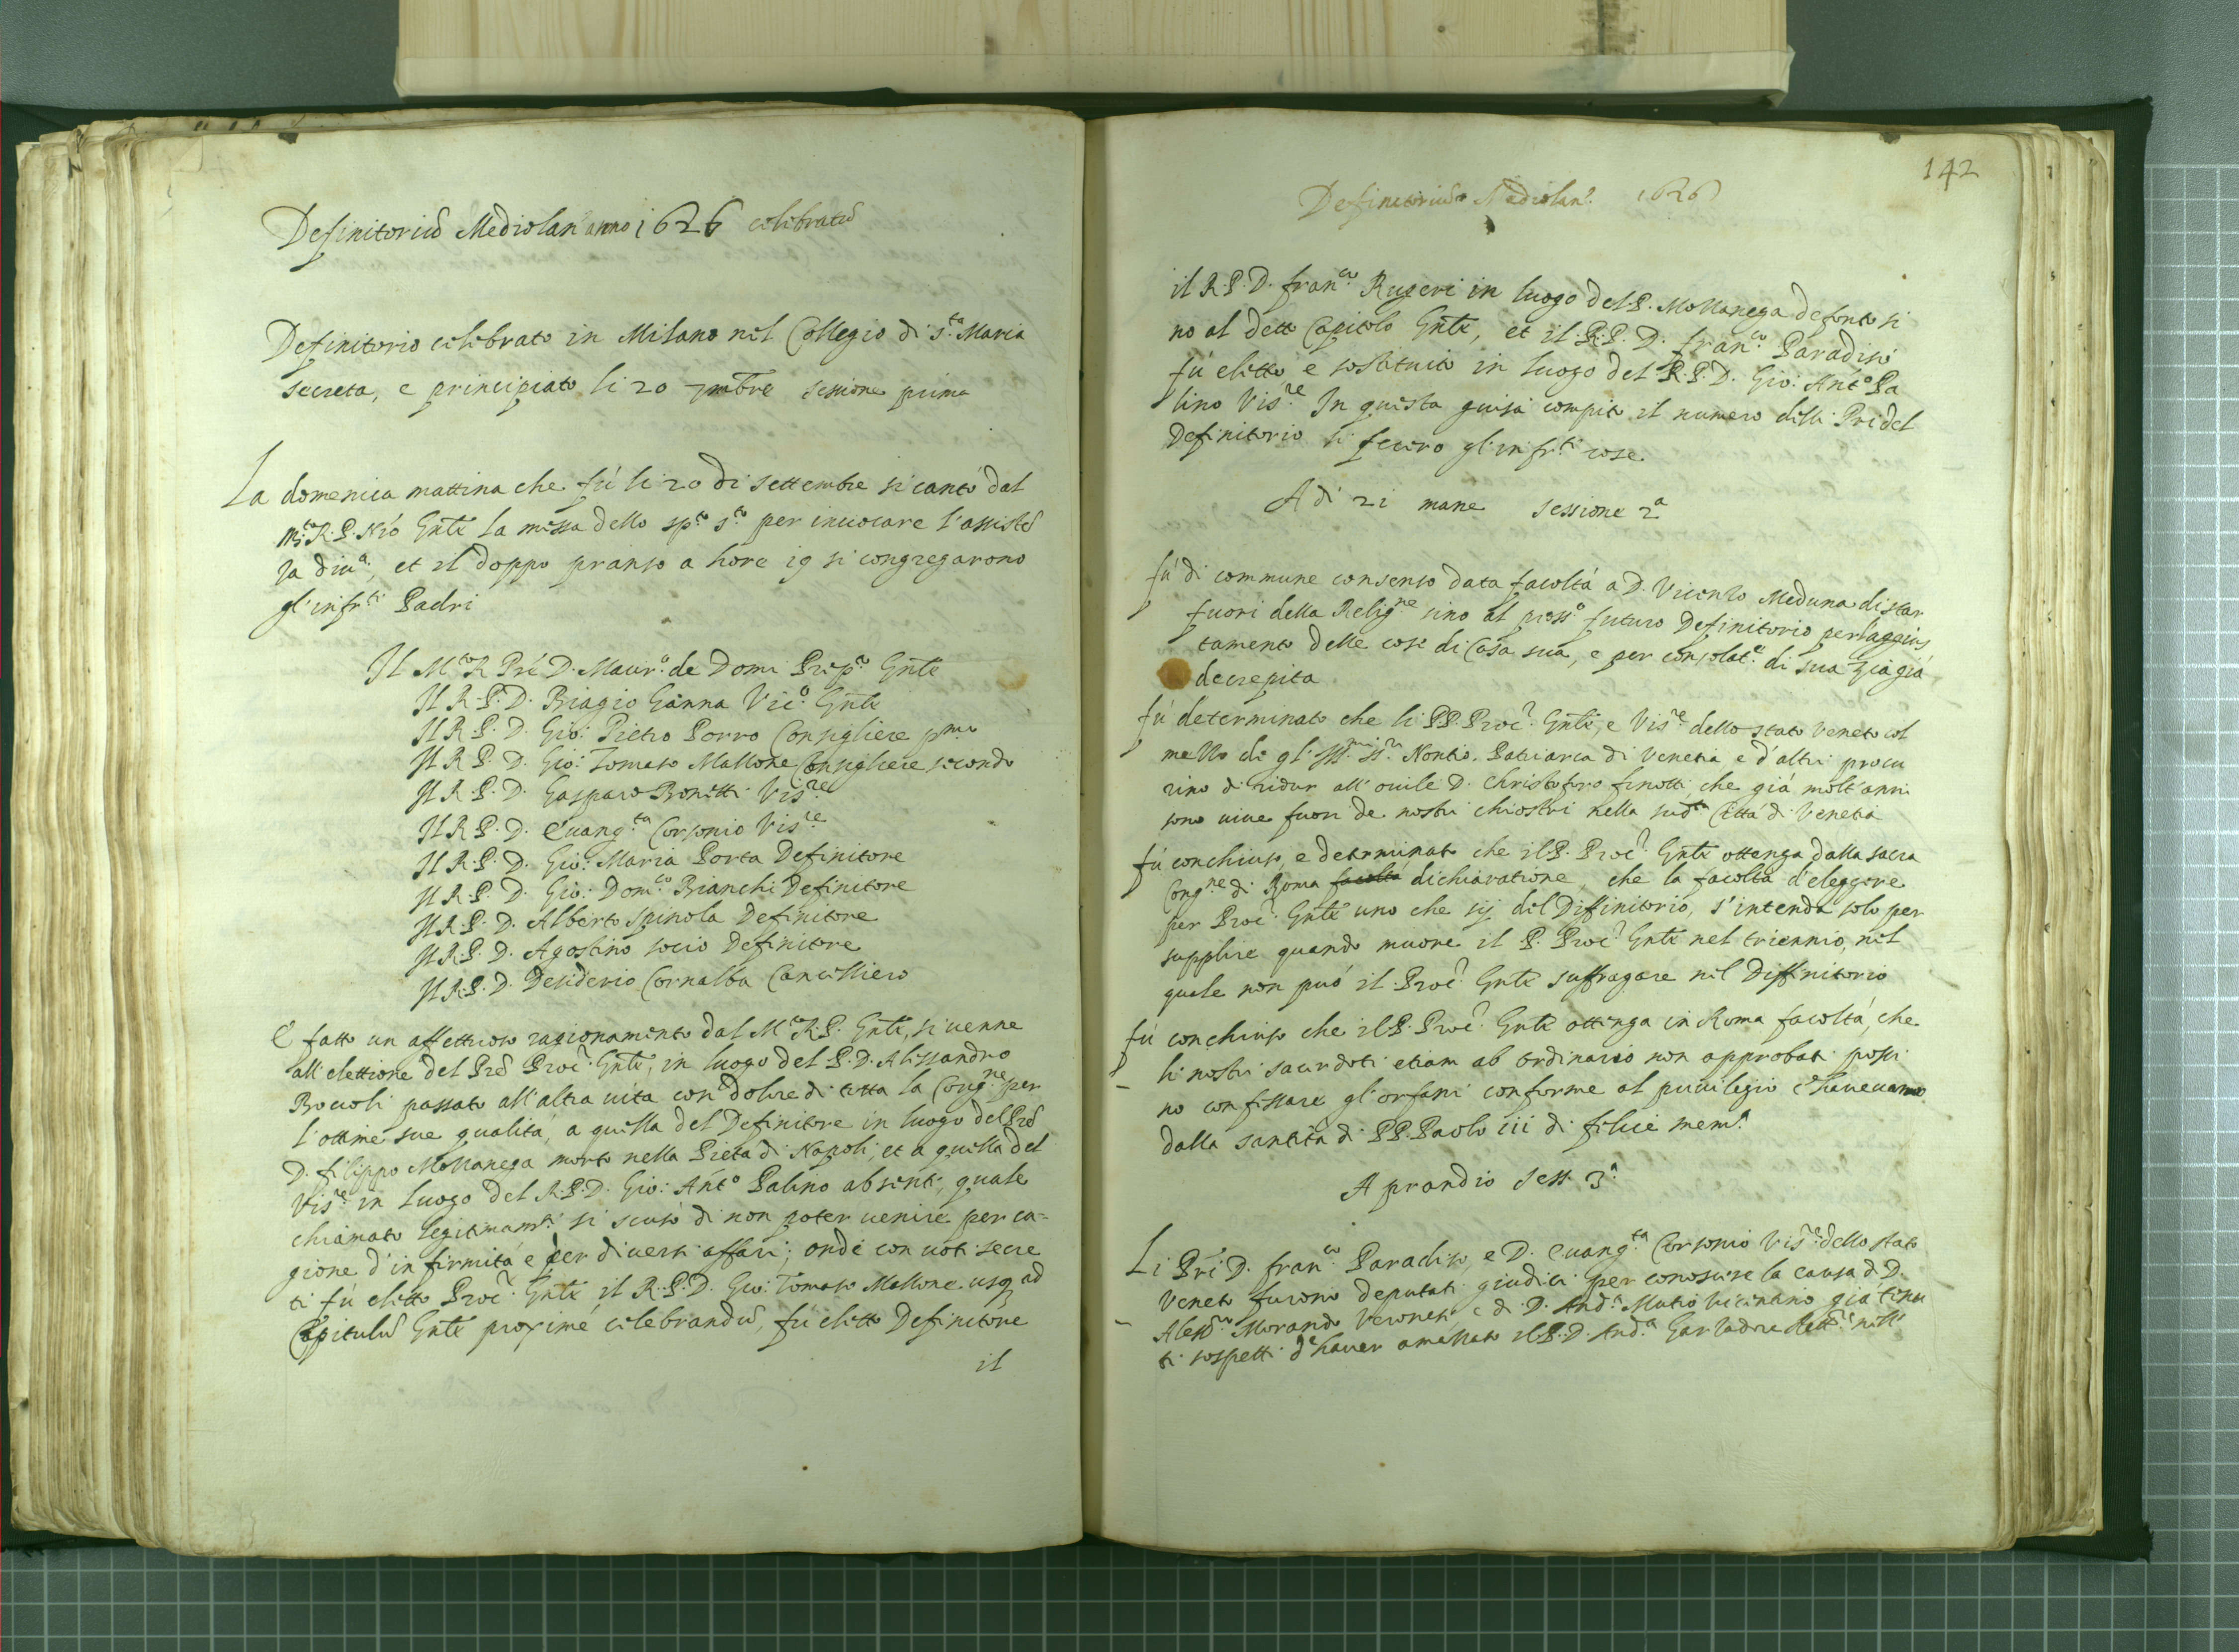 Definitoriũ Mediolan̄ anno 1626 celebratũ
Definitorio celebrato in Milano nel Collegio di s.ta Maria
secreta, e principiato li 20 7mbre sessione prima
La domenica mattina che fù li 20 di settembre si cantò dal
m.to R. P. Nr̃o Gñle la messa dello sp.to s.to per inuocare l'assistẽ
za diu.a, et il doppo pranso a hore 19 si congregarono
gl'infr.ti Padri
Il M.to R Prẽ D. Maur.o de Domi Prep.to Gñle
Il R. P. D. Biagio Ganna Vic.o Gñle
Il R. P. D. Gio: Pietro Porro Consigliere p.mo
Il R. P. D. Gio: Tomaso Mallone Consigliere secondo
Il R. P. D. Gasparo Bonetti Vis.re
Il R. P. D. Euang.ta Corsonio Vis.re
Il R. P. D. Gio: Maria Porta Definitore
Il R. P. D. Gio: Dom.co Bianchi Definitore
Il R. P. D. Alberto Spinola Definitore
Il R. P. D. Agostino socio Definitore
Il R. P. D. Desiderio Cornalba Cancelliero
E fatto un affettuoso ragionamento dal M.to R. P. Gñle, si uenne
all'elettione del Prẽ Proc.r Gñle, in luogo del P. D. Alessandro
Boccoli passato all'altra uita con dolore di tutta la Cong.ne per
l'ottime sue qualità, a quella del Definitore in luogo del Prẽ
D. filippo Mollanega morto nella Pietà di Napoli, et a quella del
Vis.re in luogo del R. P. D. Gio: Ant.o Palino absente, quale
chiamato legitimam.te si scusò di non poter uenire per ca=
gione d'infirmità e per diuersi affari; onde con uoti secre
ti fù eletto Proc.r Gñle il R. P. D. Gio: Tomaso Mallone usq ad
Capitulũ Gñle proximé celebrandũ, fù eletto Definitore
il
142
Definitoriũ Mediolan̄. 1626
il R. P. D. fran.co Rugeri in luogo del P. Mollanega defonto si
no al detto Capitolo Gñle, et il R. P. D. fran.co Paradisi
fù eletto e sostituito in luogo del R. P. D. Gio: Ant.o Pa
lino Vis.re In questa guisa compito il numero delli Pri del
Definitorio si fecero gl'infr.ti cose
A di 21 mane sessione 2.a
fù di commune consenso data facoltà a D. Vicenzo Meduna di star
fuori della Relig.ne sino al pross.o futuro Definitorio per l'aggius
tamento delle cose di Casa sua, e per consolat.e di sua zia già
decrepita
fù determinato che li PP. Proc.r Gñle, e Vis.re dello stato Veneto col
mezzo di gl'Ill.mi ss.ri Nontio, Patriarca di Venetia e d'altri procu
rino di ridur all'ouile D. Christoforo finotti che già molt'anni
sono uiue fuori de nostri chiostri nella sud.ta Città di Venetia
fù conchiuso, e determinato che il P. Proc.r Gñle ottenga dalla sacra
Cong.ne di Roma facoltà dichiaratione, che la facoltà d'eleggere
per Proc.r Gñle uno che sij del Diffinitorio, s'intenda solo per
supplire quando muore il P. Proc.r Gñle nel triennio, nel
quale non può il Proc.r Gñle suffragare nel Diffinitorio
fù conchiuso che il P. Proc.r Gñle ottenga in Roma facoltà, che
li nostri sacerdoti etiam ab ordinario non approbati possi
no confessare gl'orfani conforme al priuilegio c'haueuamo
dalla santità di PP. Paolo iii di felice mem.a
A prandio Sess. 3.a
Li Pri D. fran.co Paradiso, e D. Euang.ta Corsonio Vis.re dello stato
Veneto furono deputati giudici per conoscere la causa di D.
Aless.ro Morando Veronese e di D. And.a Mutio Vicintino già tenu
ti sospetti d'hauer amazzato il P. D. And.a Garladore Rett.e nell'